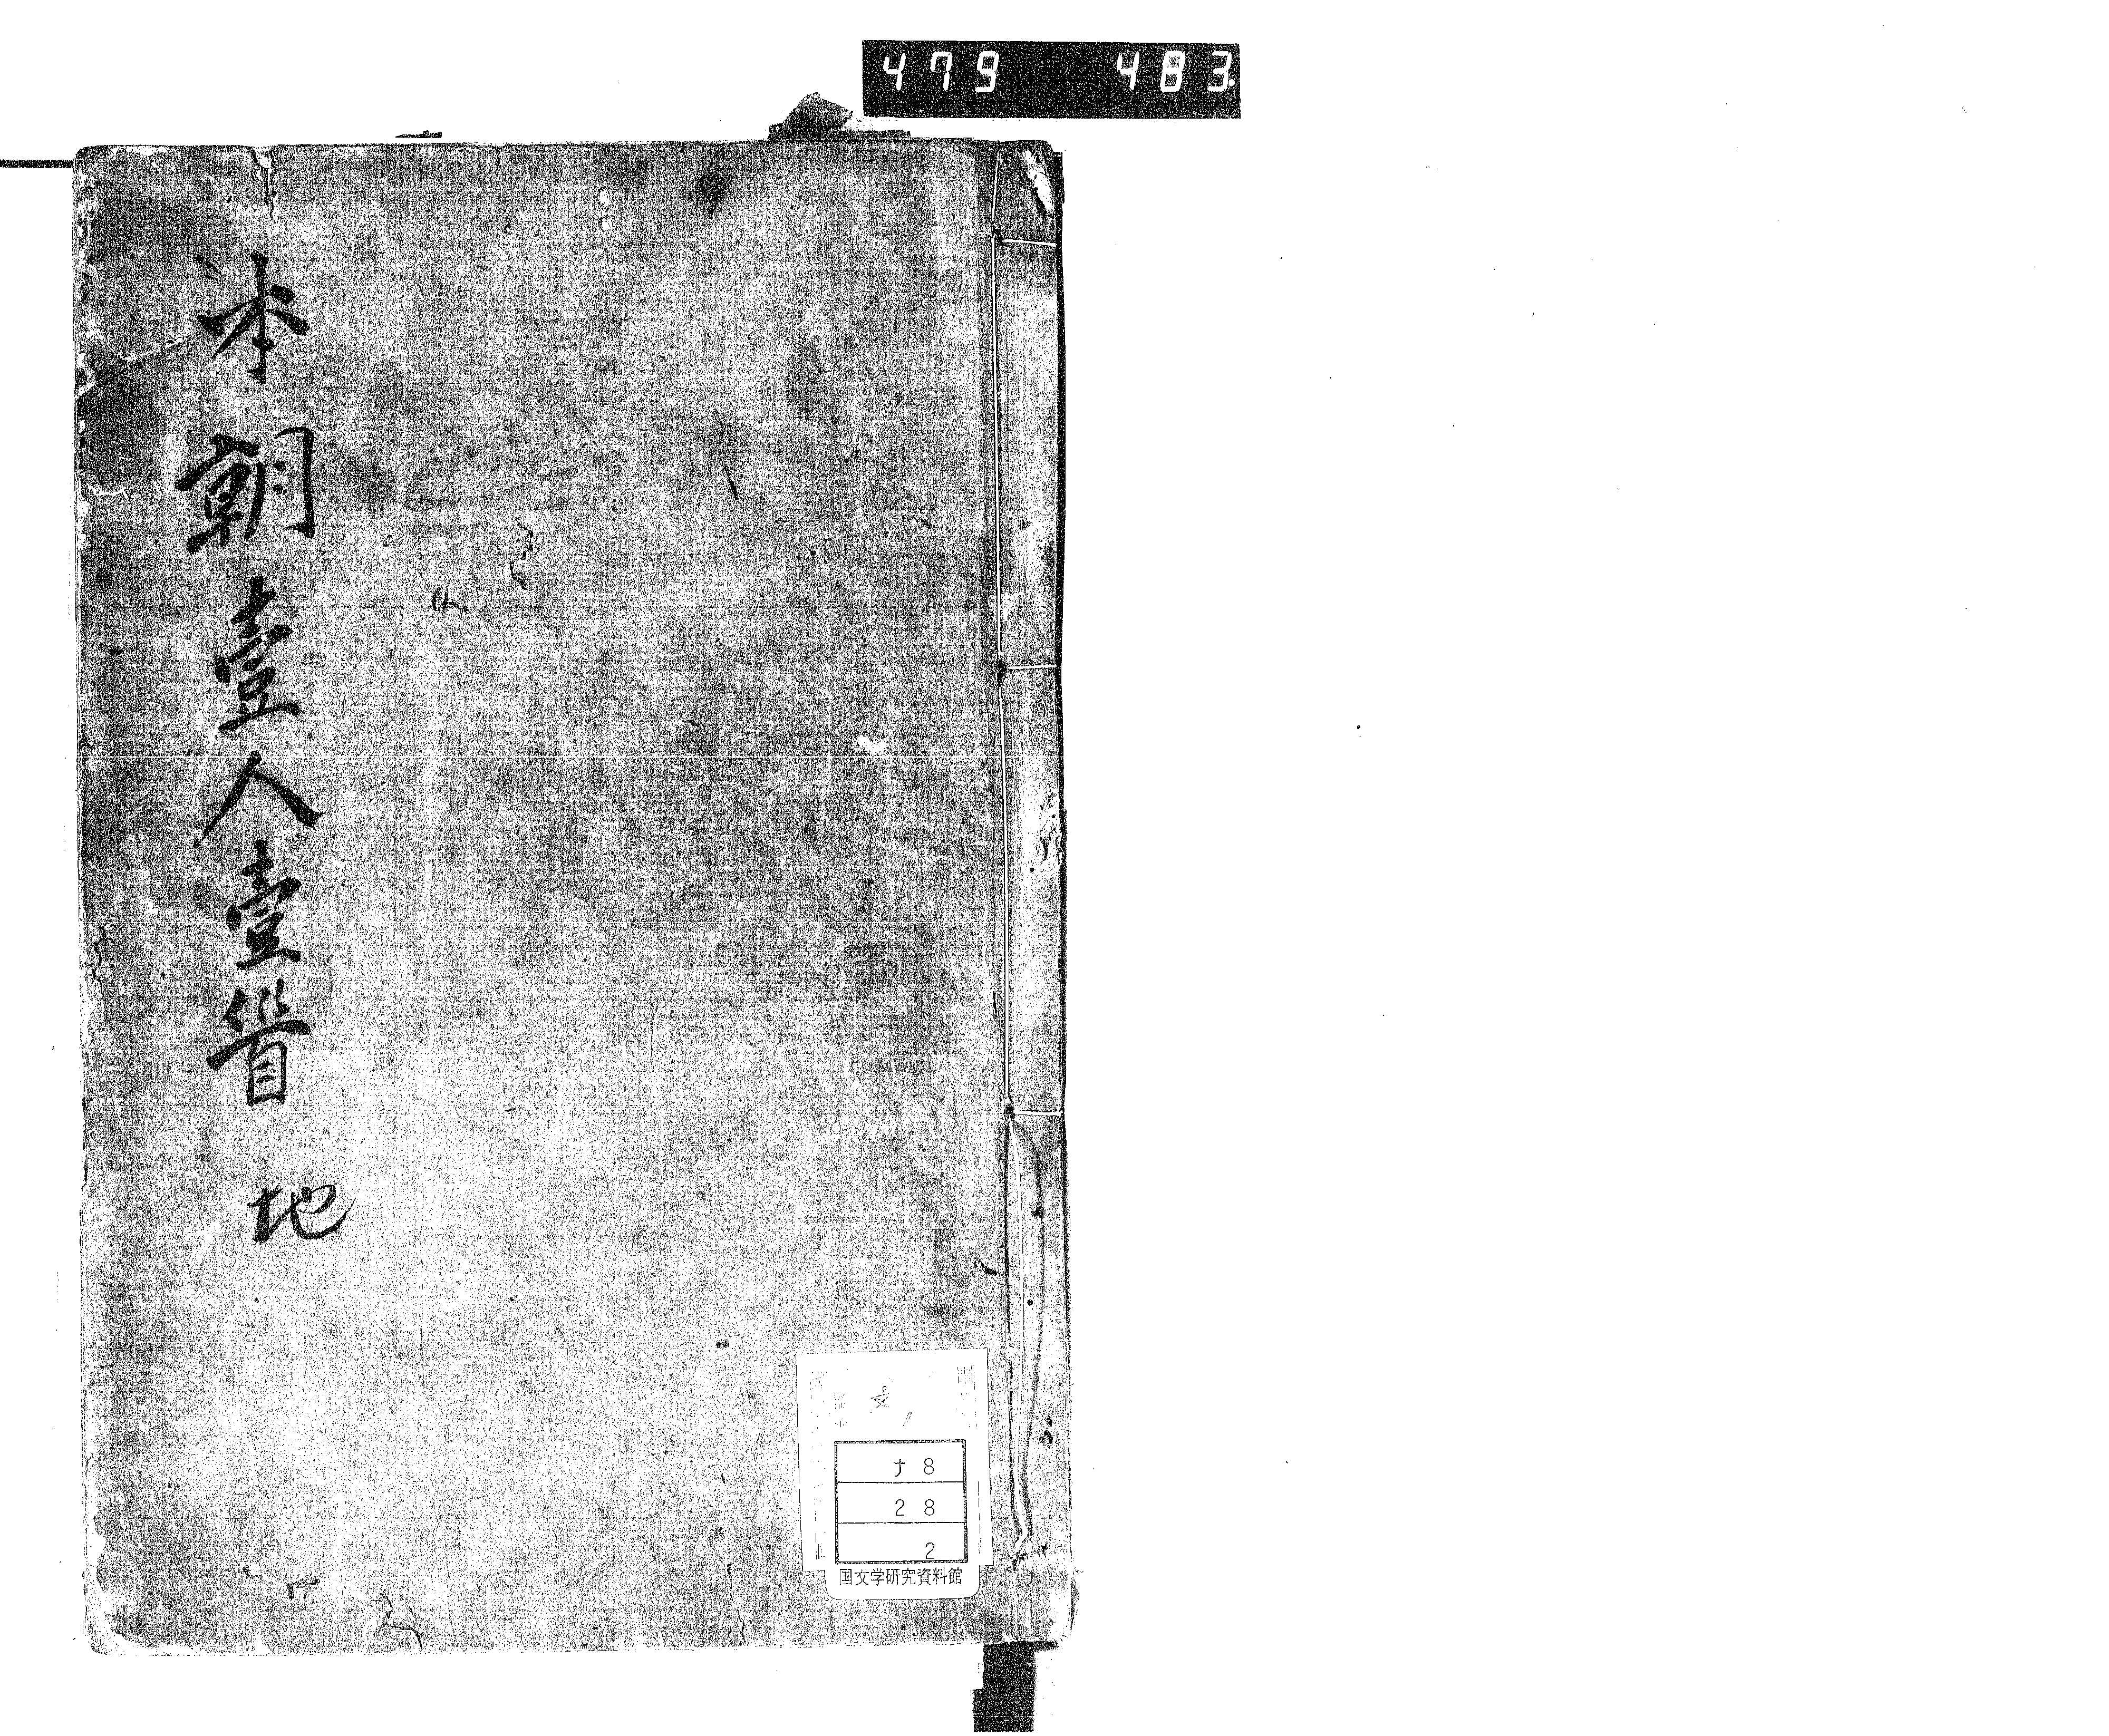 479 483
本朝壹人壹首 地
ナ8
28
2
国文学研究資料館